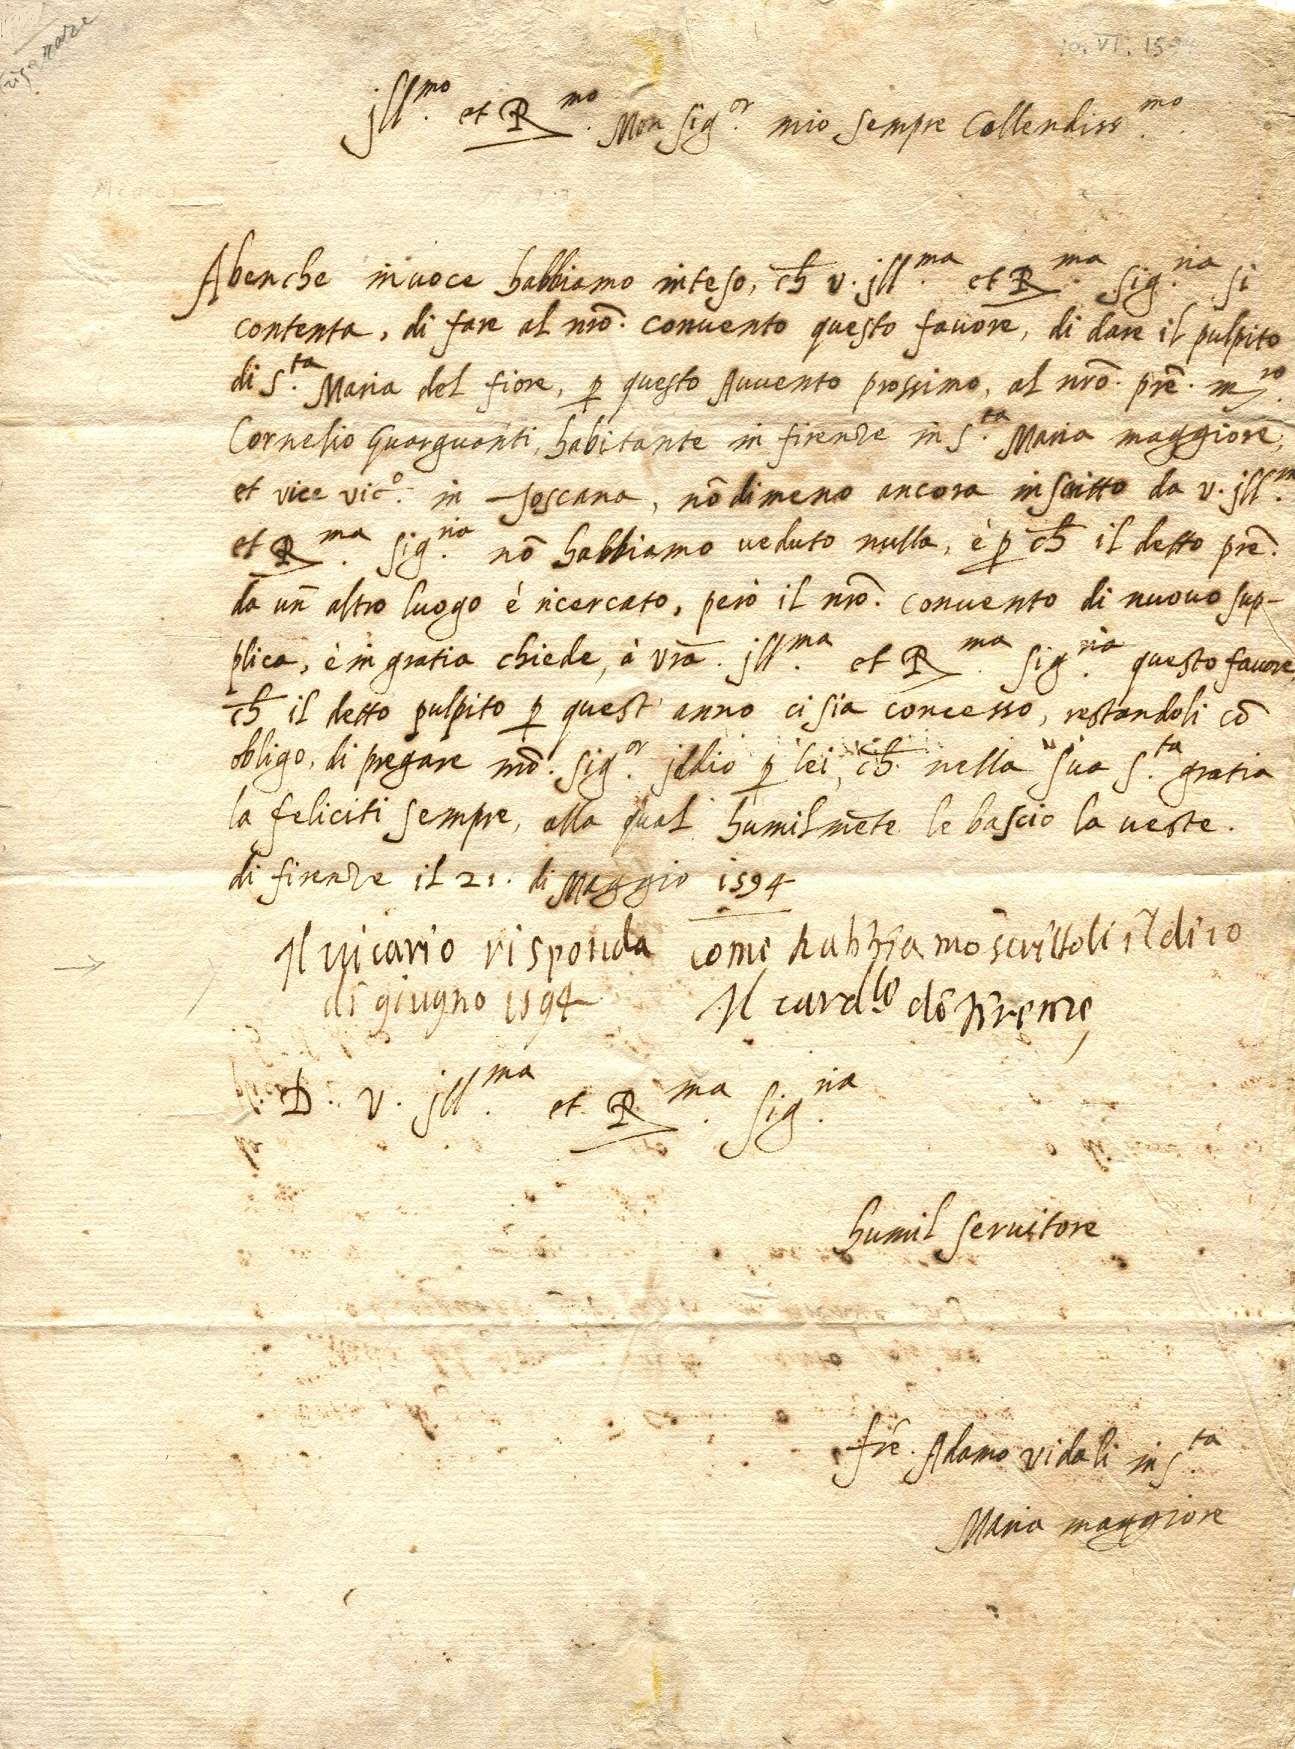 10. VI. 1594
Jll.mo et R.mo Mon Sig.or mio sempre Collendiss.mo
Abenche in uoce habbiamo inteso, ch̄ v. Jll.ma et R.ma Sig.ria si
contenta, di fare al nrō. conuento questo fauore, di dare il pulpito
di S.ta Maria del fiore, p̱ questo Auuento prossimo, al nrō. prē. m.ro
Cornelio Guarguanti, habitante in firenze in S.ta Maria maggiore,
et vice vic.o in Toscana, nō dimeno ancora in scritto da v. Jll.ma
et R.ma Sig.ria nō habbiamo ueduto nulla, è p̱ ch̄ il detto prē.
da un altro luogo è ricercato, però il nrō. conuento di nuouo sup-
plica, è in gratia chiede, à vrā. Jll.ma et R.ma Sig.ria questo fauore,
ch̄ il detto pulpito p̱ quest' anno ci sia concesso, restandoli cō
obligo, di pregare nrō. Sig.or Jddio p̱ lei, ch̄. nella sua S.ta gratia
la feliciti sempre, alla qual humilmēte le bascio la ueste.
di firenze il 21. di Maggio 1594
Il uicario risponda come habbiamo scrittoli il di 10
di giugno 1594 Il card.le di firenze,
D. V. Jll.ma et R.ma Sig.ria
humil seruitore
frē. Adamo vidali in S.ta
Maria maggiore